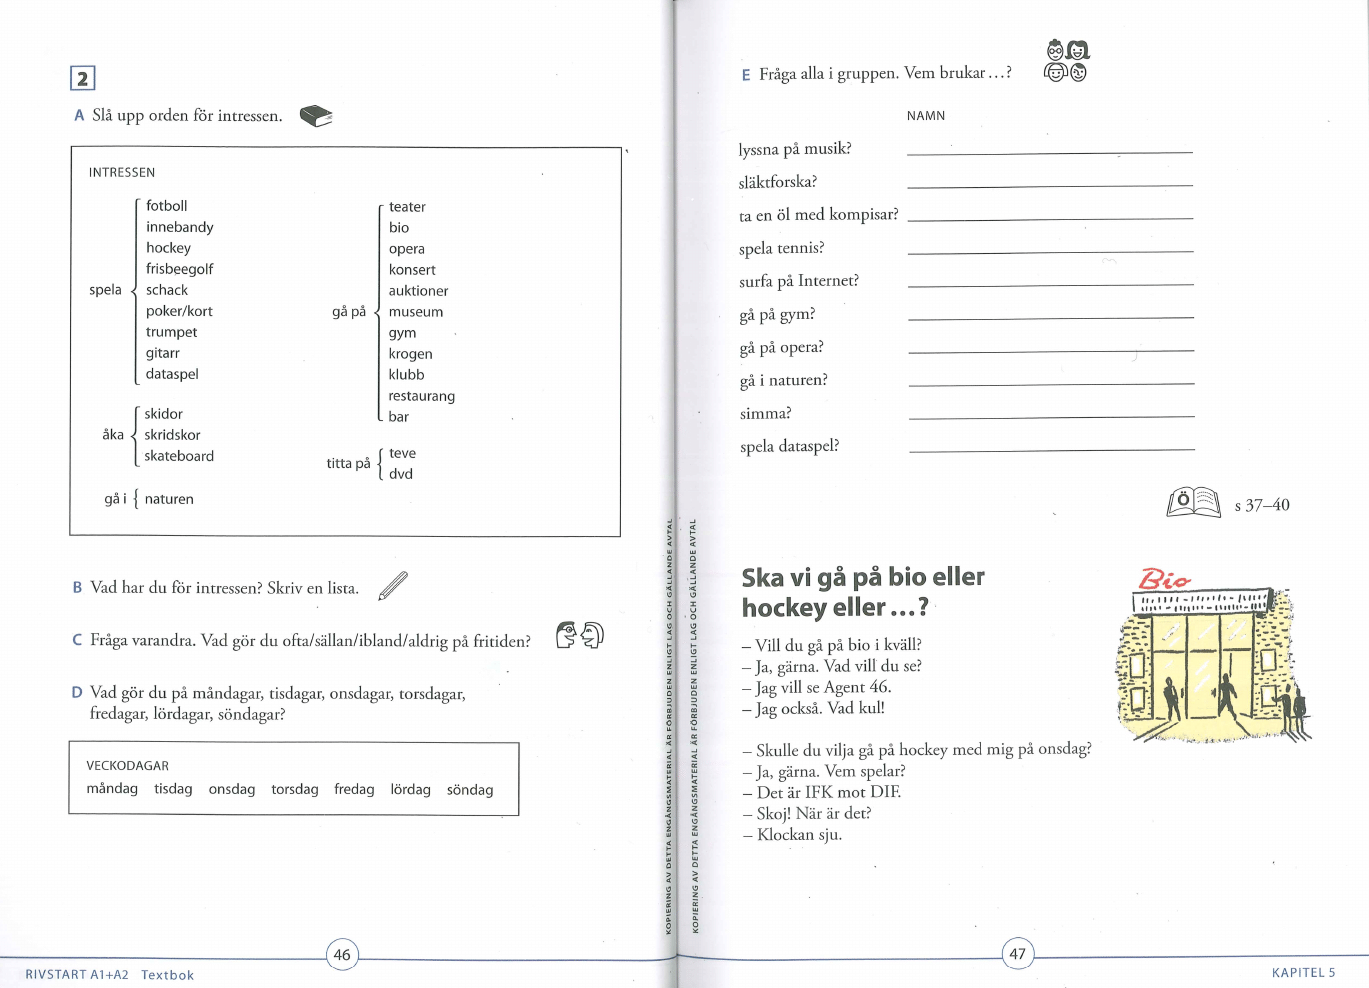 2
A Slå upp orden för intressen.
INTRESSEN
spela
fotboll
innebandy
hockey
frisbeegolf
schack
poker/kort
trumpet
gitarr
dataspel
åka
skidor
skridskor
skateboard
gå i
naturen
gå på
teater
bio
opera
konsert
auktioner
museum
gym
krogen
klubb
restaurang
bar
titta på
teve
dvd
B Vad har du för intressen? Skriv en lista.
C Fråga varandra. Vad gör du ofta/sällan/ibland/aldrig på fritiden?
D Vad gör du på måndagar, tisdagar, onsdagar, torsdagar,
fredagar, lördagar, söndagar?
VECKODAGAR
måndag tisdag onsdag torsdag fredag lördag söndag
46
RIVSTART A1+A2 Textbok
KOPIERING AV DETTA ENGÅNGSMATERIAL ÄR FÖRBJUDEN ENLIGT LAG OCH GÄLLANDE AVTAL
KOPIERING AV DETTA ENGÅNGSMATERIAL ÄR FÖRBJUDEN ENLIGT LAG OCH GÄLLANDE AVTAL
E Fråga alla i gruppen. Vem brukar ...?
NAMN
lyssna på musik?
släktforska?
ta en öl med kompisar?
spela tennis?
surfa på Internet?
gå på gym?
gå på opera?
gå i naturen?
simma?
spela dataspel?
Ö s 37–40
Ska vi gå på bio eller
hockey eller ...?
Bio
– Vill du gå på bio i kväll?
– Ja, gärna. Vad vill du se?
– Jag vill se Agent 46.
– Jag också. Vad kul!
– Skulle du vilja gå på hockey med mig på onsdag?
– Ja, gärna. Vem spelar?
– Det är IFK mot DIF.
– Skoj! När är det?
– Klockan sju.
47
KAPITEL 5